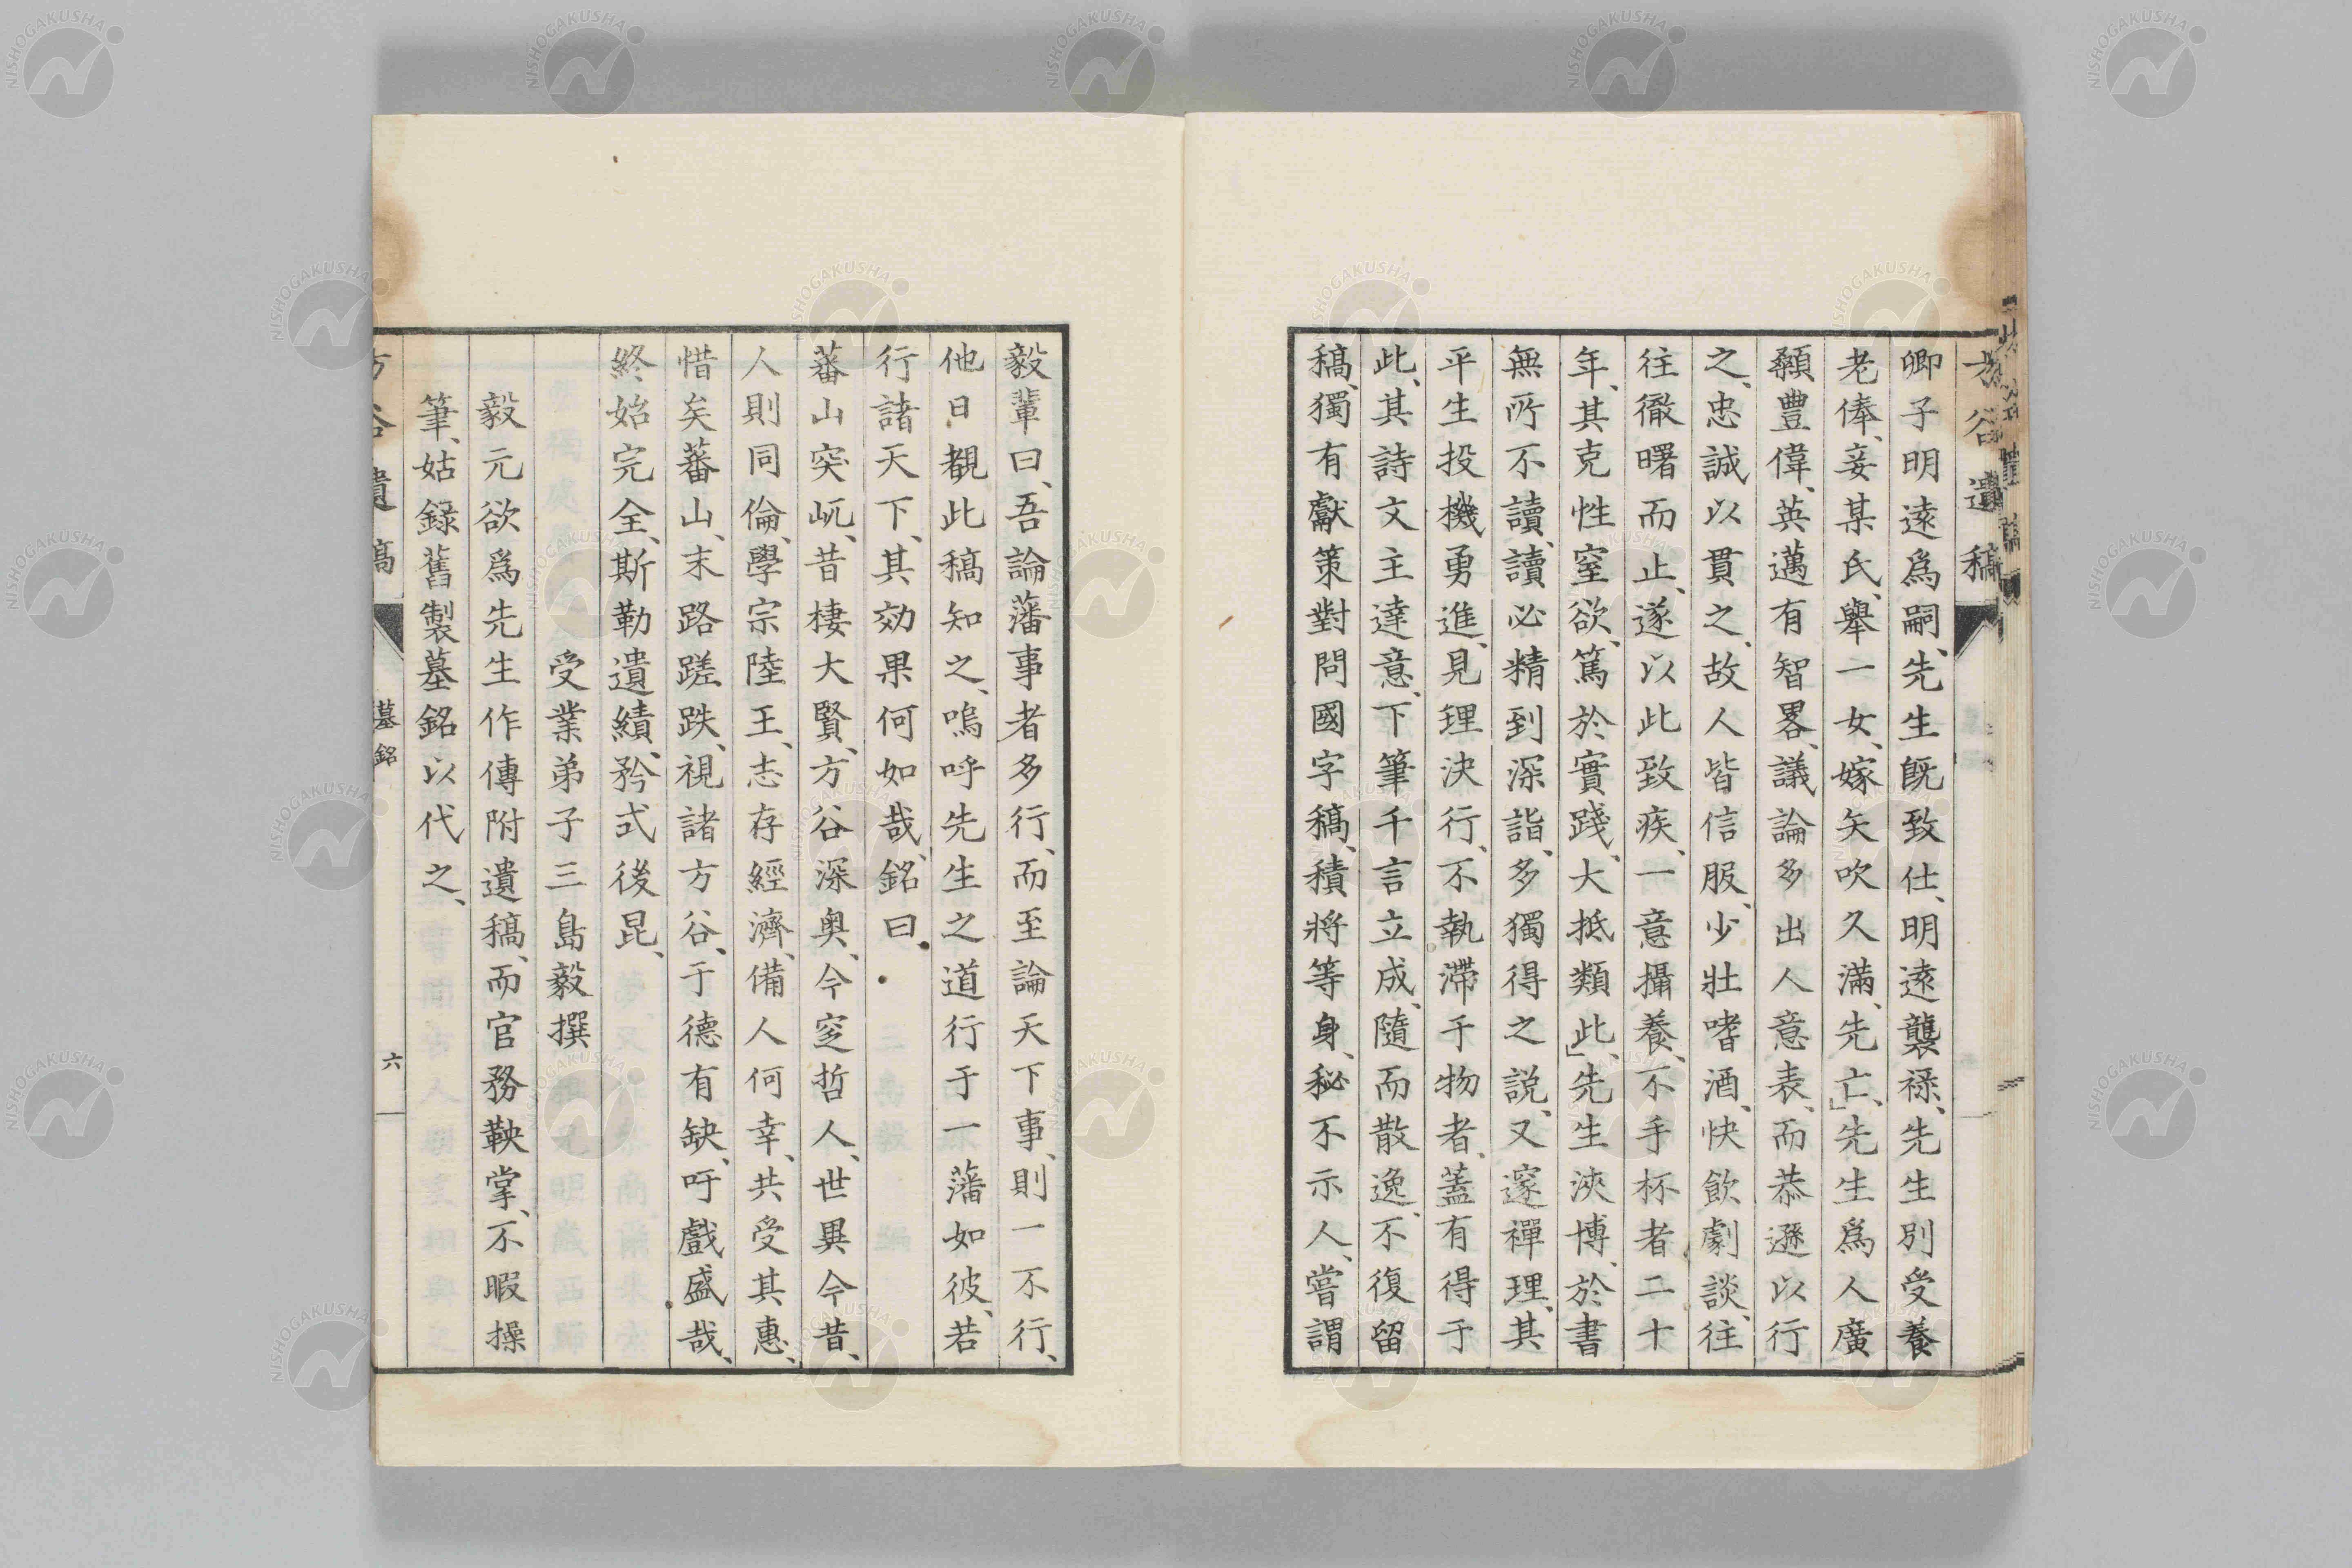 方谷遺稿
卿子明遠爲嗣、先生既致仕、明遠襲祿、先生別受養
老俸、妾某氏、舉一女、嫁矢吹久滿、先亡、」先生爲人廣
顙豐偉、英邁有智畧、議論多出人意表、而恭遜以行
之、忠誠以貫之、故人皆信服、少壯嗜酒、快飲劇談、往
往徹曙而止、遂以此致疾、一意攝養、不手杯者二十
年、其克性窒欲、篤於實踐、大抵類此、」先生浹博、於書
無所不讀、讀必精到深詣、多獨得之説、又邃禪理、其
平生投機勇進、見理決行、不執滯于物者、蓋有得于
此、其詩文主達意、下筆千言立成、隨而散逸、不復留
稿、獨有獻策對問國字稿、積將等身、秘不示人、嘗謂
毅輩曰、吾論藩事者多行、而至論天下事、則一不行、
他日覩此稿知之、嗚呼先生之道行于一藩如彼、若
行諸天下、其効果何如哉、銘曰、
蕃山突屼、昔棲大賢、方谷深奥、今窆哲人、世異今昔、
人則同倫、學宗陸王、志存經濟、備人何幸、共受其惠、
惜矣蕃山、末路蹉跌、視諸方谷、于德有缺、吁戲盛哉、
終始完全、斯勒遺績、矜式後昆、
受業弟子三島毅撰
毅元欲爲先生作傳附遺稿、而官務鞅掌、不暇操
筆、姑錄舊製墓銘以代之、
方谷遺稿 墓銘 六
NISHOGAKUSHA